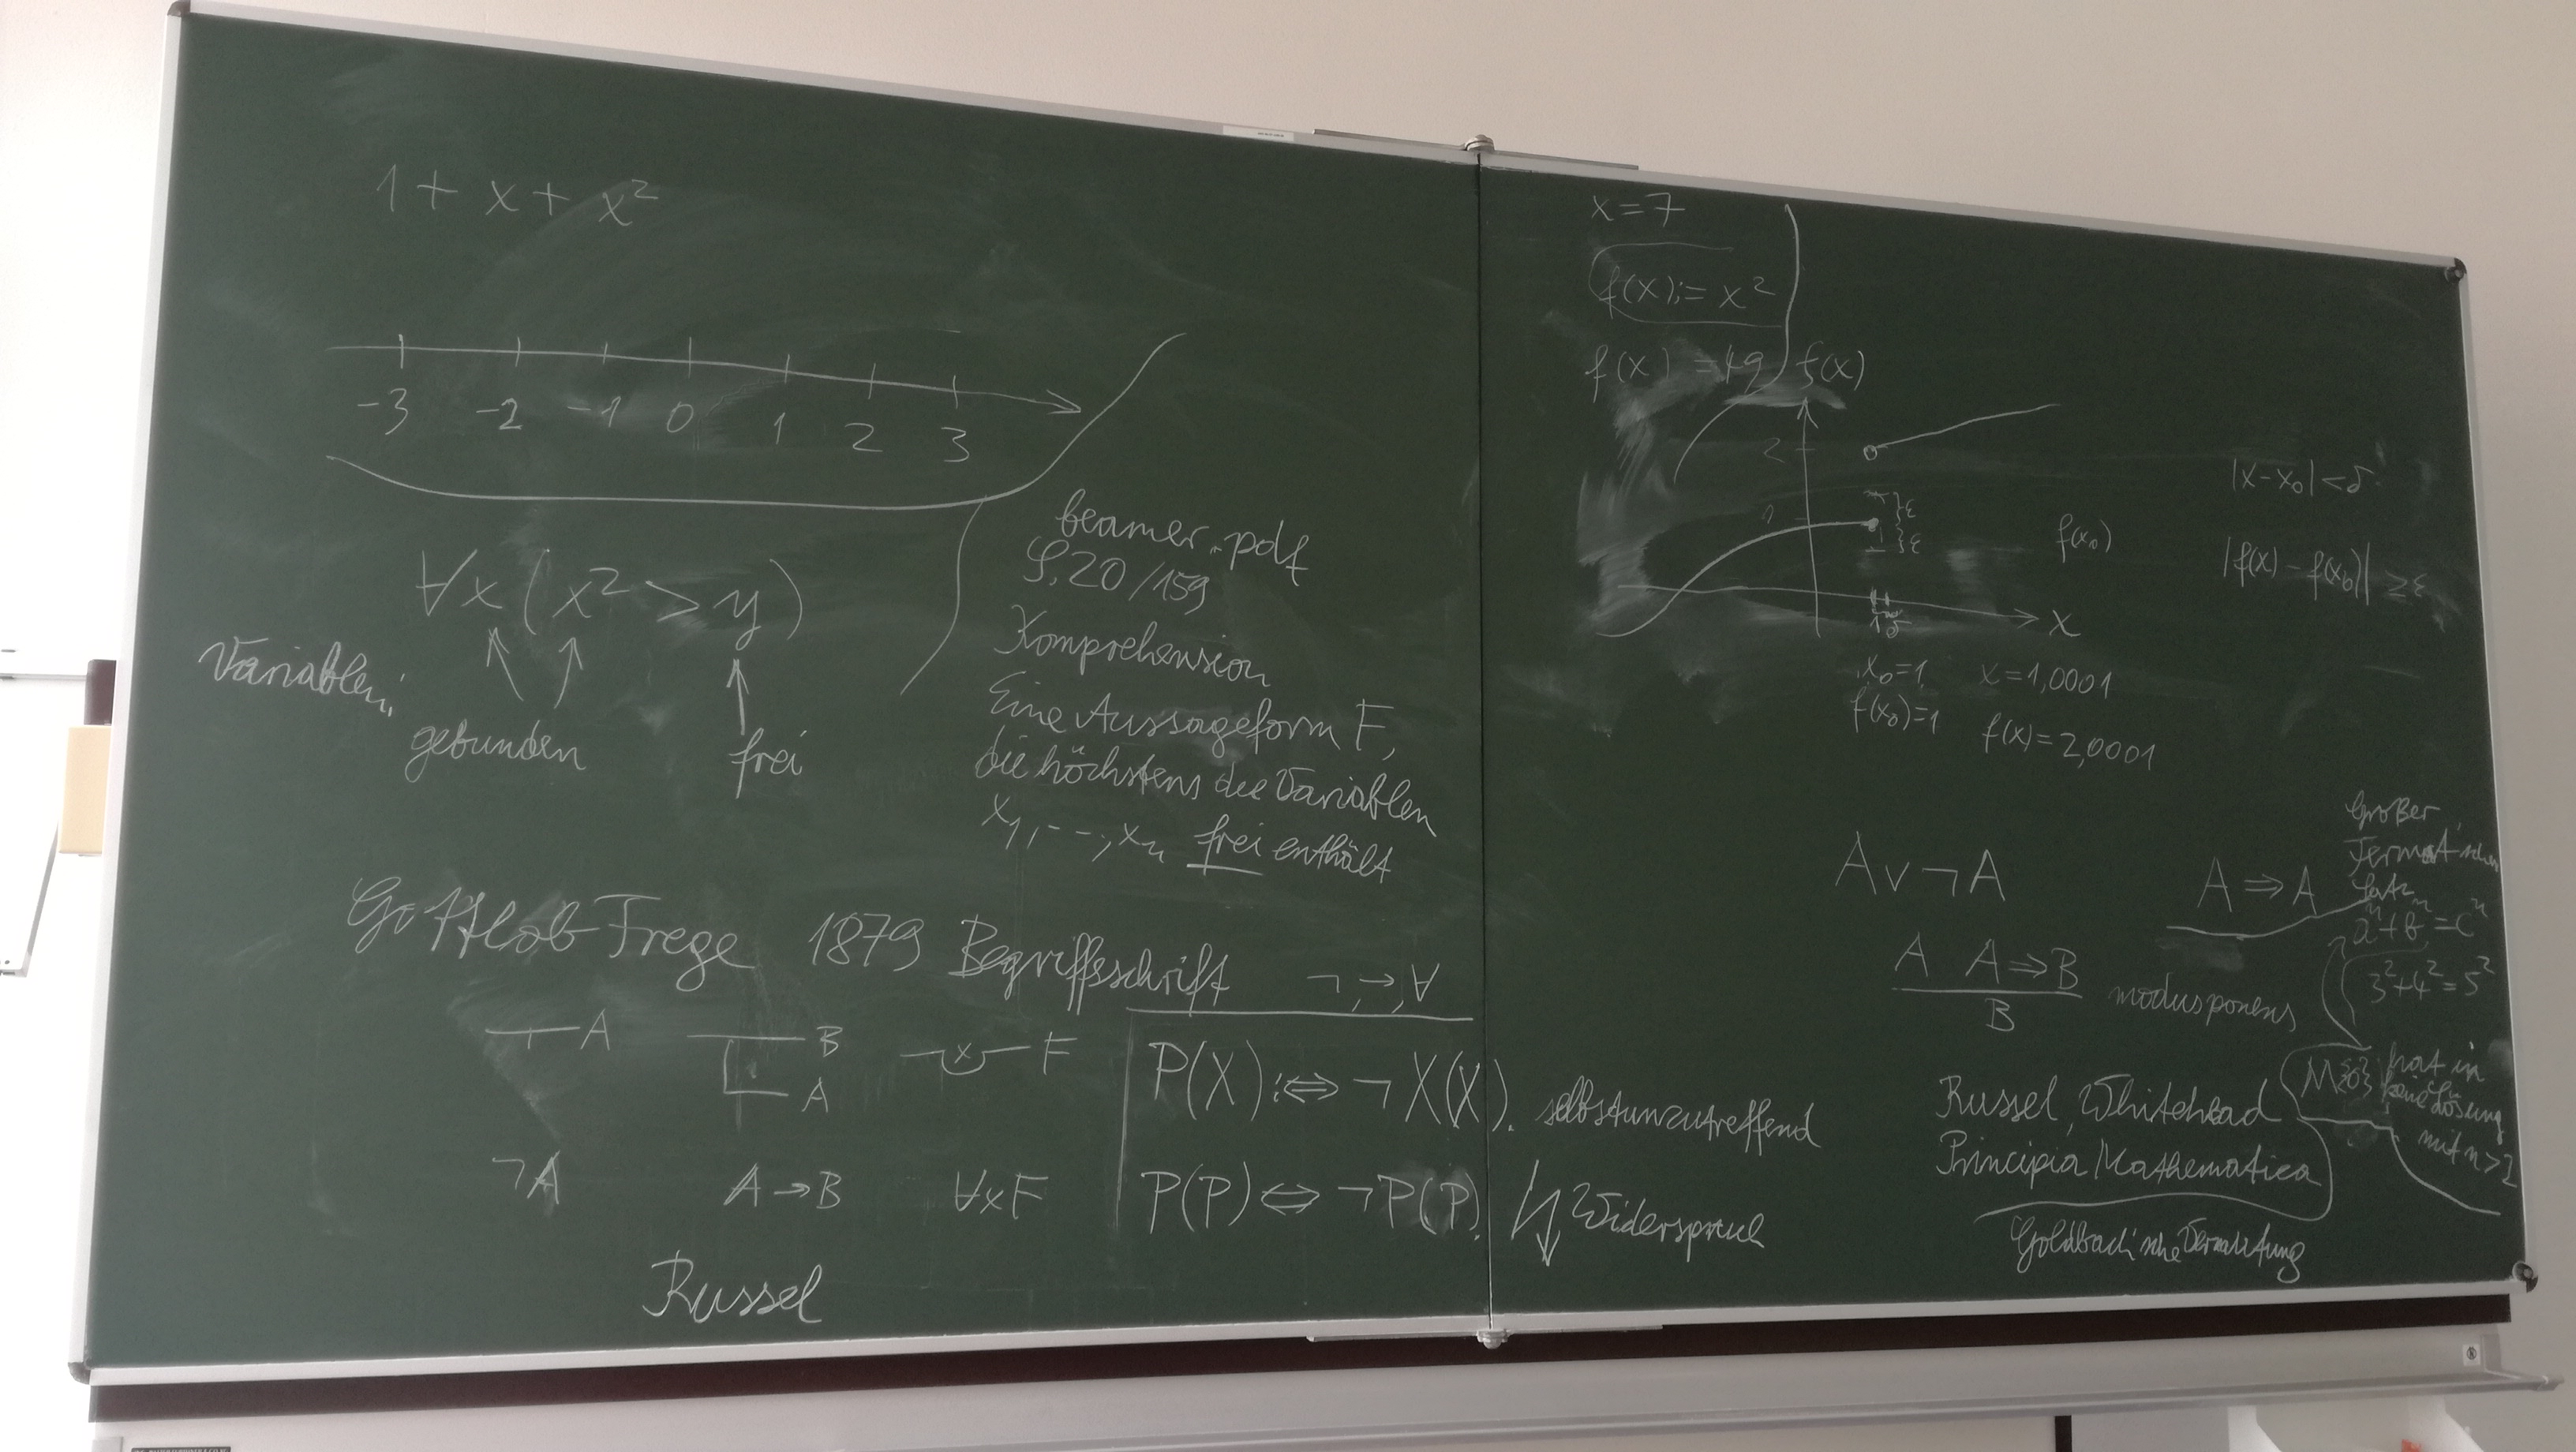 1 + x + x²
-3 -2 -1 0 1 2 3
∀x (x² > y)
Variablen:
gebunden
frei
beamer.pdf
S. 20/159
Komprehension
Eine Aussageform F,
die höchstens die Variablen
x₁, ---, xₙ frei enthält
Gottlob Frege 1879 Begriffsschrift ¬, →, ∀
A
B
A
x F
¬A
A → B
∀xF
Russel
P(X) :⇔ ¬X(X). selbstunzutreffend
P(P) ⇔ ¬P(P). Widerspruch
x = 7
f(x) := x²
f(x) = 49
f(x)
2
1
ε
ε
1 δ
x
f(x₀)
|x - x₀| < δ
|f(x) - f(x₀)| ≥ ε
x₀ = 1 x = 1,0001
f(x₀) = 1 f(x) = 2,0001
A ∨ ¬A
A ⇒ A
A A ⇒ B
B
modus ponens
Großer
Fermat'sche
Satz
aⁿ + bⁿ = cⁿ
3² + 4² = 5²
hat in
keine Lösung
mit n > 2
Russel, Whitehead
Principia Mathematica
Goldbach'sche Vermutung